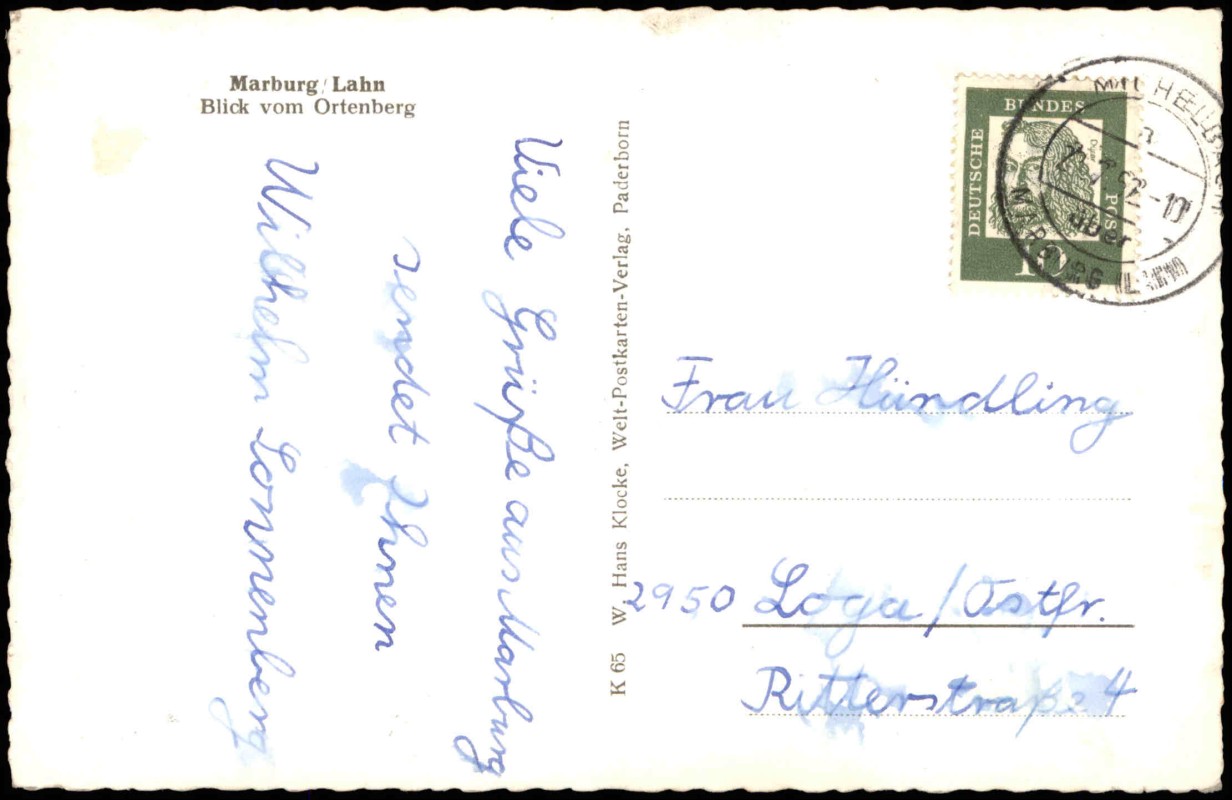 Marburg/Lahn
Blick vom Ortenberg
Viele Grüße aus Marburg
sendet Ihnen
Wilhelm Sonnenberg
K 65 W. Hans Klocke, Welt-Postkarten-Verlag, Paderborn
DEUTSCHE
BUNDES
POST
Dürer
10
MICHELBACH
über
MARBURG (LAHN)
Frau Hündling
2950 Loga/Ostfr.
Ritterstraße 4